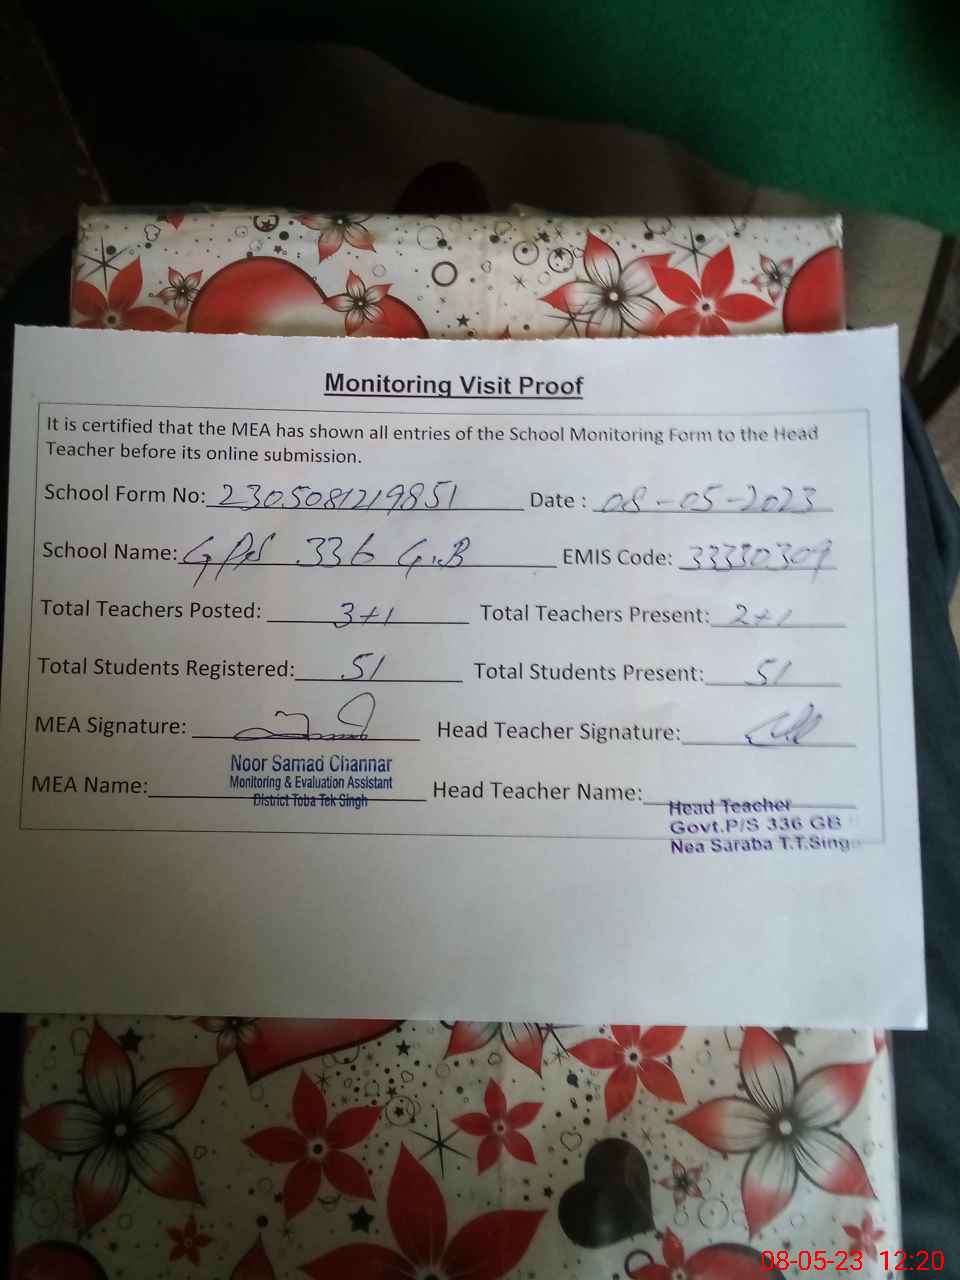 Monitoring Visit Proof
It is certified that the MEA has shown all entries of the School Monitoring Form to the Head
Teacher before its online submission.
School Form No: 2305081219851 Date : 08-05-2023
School Name: GPS 336 G.B EMIS Code: 33330309
Total Teachers Posted: 3+1 Total Teachers Present: 2+1
Total Students Registered: 51 Total Students Present: 51
MEA Signature: Head Teacher Signature:
Noor Samad Channar
Monitoring & Evaluation Assistant
District Toba Tek Singh
MEA Name: Head Teacher Name:
Head Teacher
Govt.P/S 336 GB
Nea Saraba T.T.Sing
08-05-23 12:20